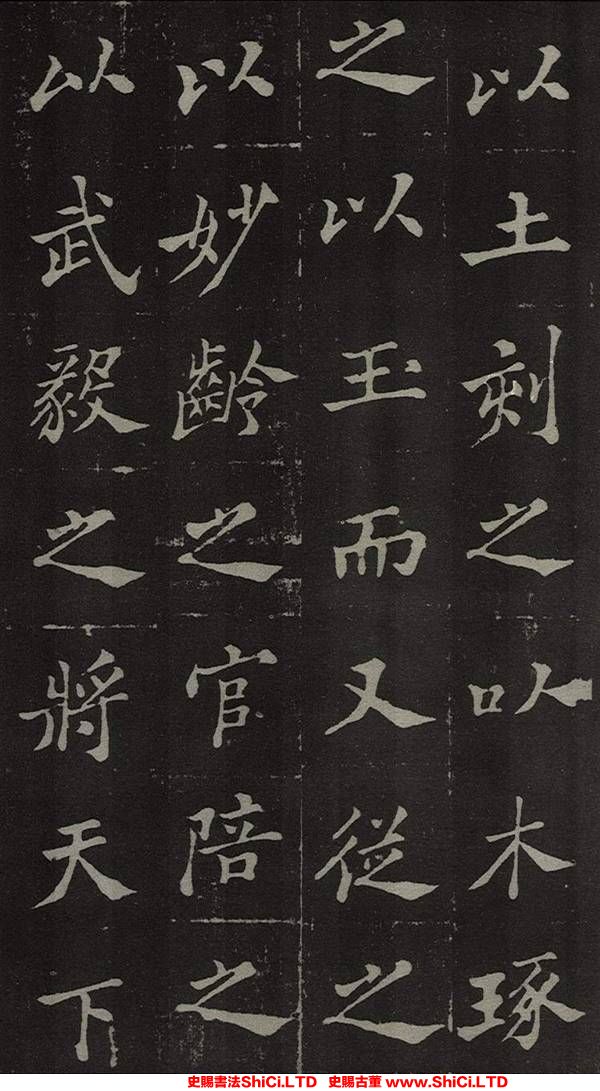 以土刻之以木琢
之以玉而又從之
以妙齡之官陪之
以武毅之將天下
史賜書法ShiCi.LTD 史賜古董 www.ShiCi.LTD